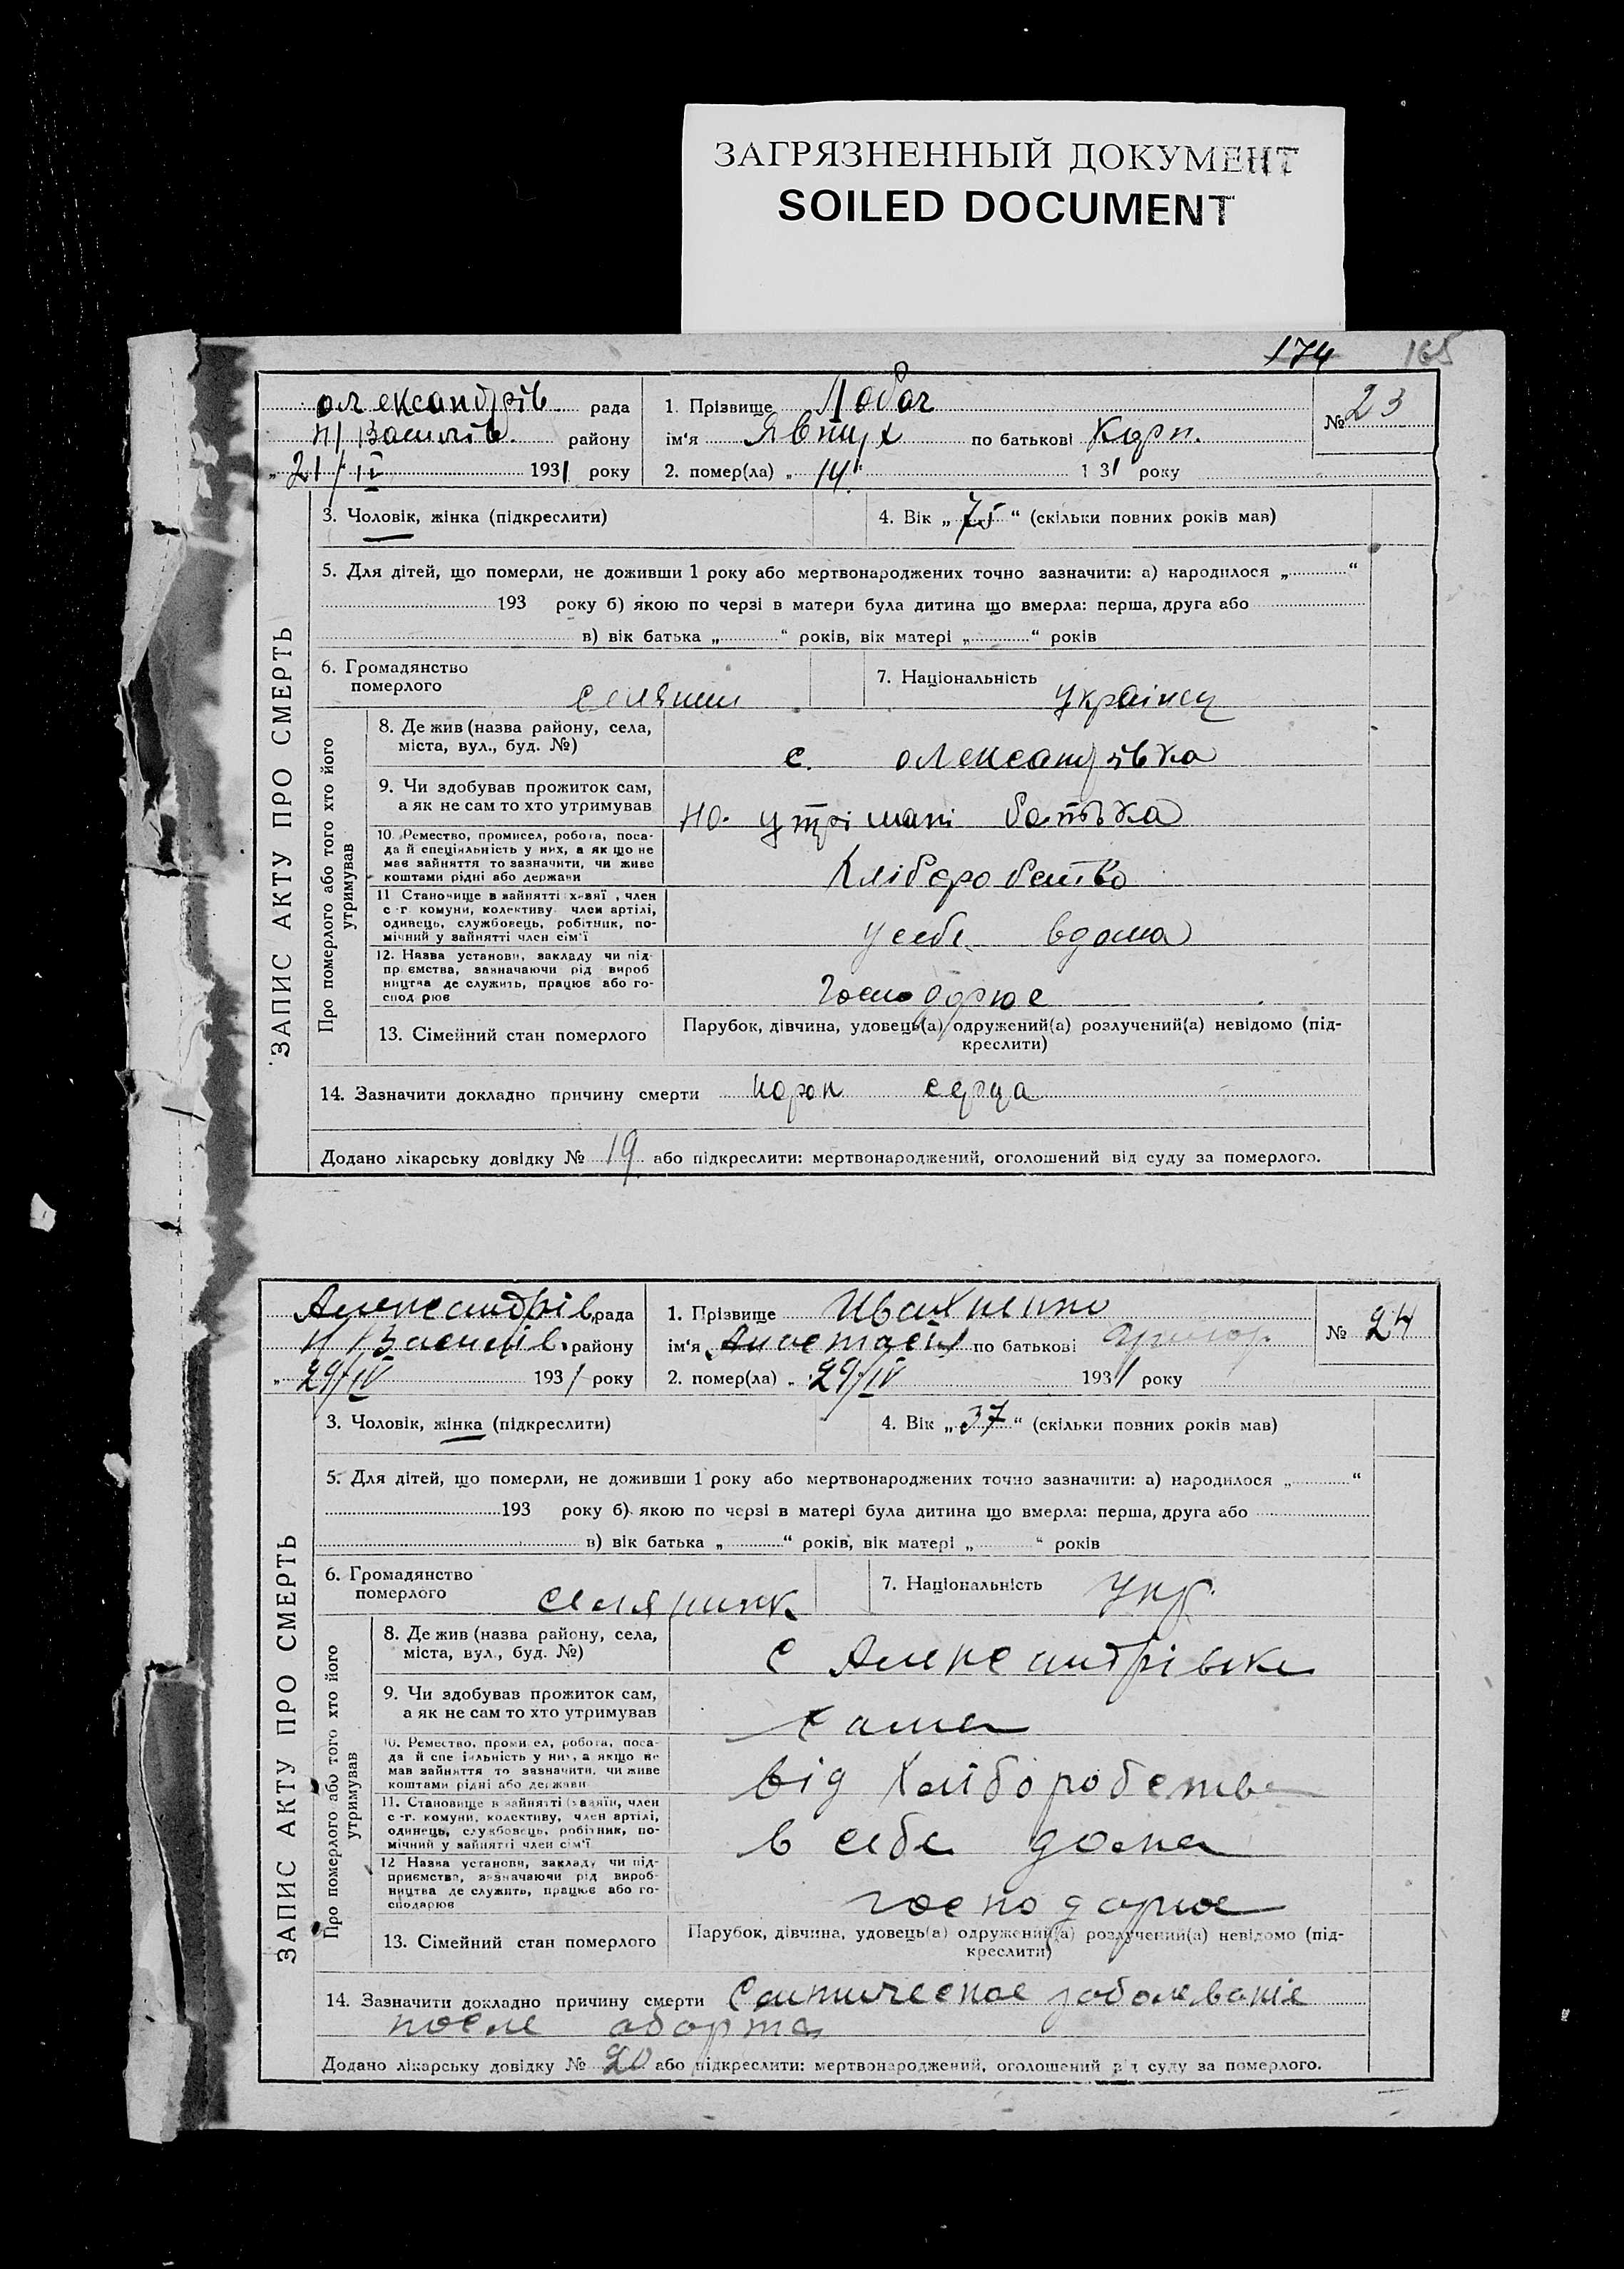 ЗАГРЯЗНЕННЫЙ ДОКУМЕНТ
SOILED DOCUMENT
174 165
ЗАПИС АКТУ ПРО СМЕРТЬ
олександрів рада
н/Василів. району
„21/IV 1931 року
1. Прізвище Лобач
ім'я Явтух по батькові Карп.
2. помер(ла) „14" 1 31 року
№ 23
3. Чоловік, жінка (підкреслити)
4. Вік „75“ (скільки повних років мав)
5. Для дітей, що померли, не доживши 1 року або мертвонароджених точно зазначити: а) народилося „ “
193 року б) якою по черзі в матери була дитина що вмерла: перша, друга або
в) вік батька „ “ років, вік матері „ “ років
6. Громадянство
померлого селянин
7. Національність українец
Про померлого або того хто його
утримував
8. Де жив (назва району, села,
міста, вул., буд. №)
с. олександрівка
9. Чи здобував прожиток сам,
а як не сам то хто утримував
на утрімані батька
10. Ремество, промисел, робота, поса-
да й спеціяльність у них, а як що не
мав зайняття то зазначити, чи живе
коштами рідні або держави
хліборобство
11 Становище в зайнятті х-вяї , член
с-г. комуни, колективу. член артілі,
одинець, службовець, робітник, по-
мічний у зайнятті член сім'ї
у себе вдома
12. Назва установи, закладу чи під-
пр ємства, зазначаючи рід вироб
ництва де служить, працює або го-
спод рює
господарює
13. Сімейний стан померлого
Парубок, дівчина, удовець(а) одружений(а) розлучений(а) невідомо (під-
креслити)
14. Зазначити докладно причину смерти порок серца
Додано лікарську довідку № 19 або підкреслити: мертвонароджений, оголошений від суду за померлого.
ЗАПИС АКТУ ПРО СМЕРТЬ
Александрів. рада
н/Василів. району
„29/IV 1931 року
1. Прізвище Ивахненко
ім'я Анастасія по батькові Григор.
2. помер(ла) „29/IV 1931 року
№ 24
3. Чоловік, жінка (підкреслити)
4. Вік „37“ (скільки повних років мав)
5. Для дітей, що померли, не доживши 1 року або мертвонароджених точно зазначити: а) народилося „ “
193 року б) якою по черзі в матері була дитина що вмерла: перша, друга або
в) вік батька „ “ років, вік матері „ “ років
6. Громадянство
померлого
7. Національність Укр.
Про померлого або того хто його
утримував
8. Де жив (назва району, села,
міста, вул., буд. №)
с Александрівка
9. Чи здобував прожиток сам,
а як не сам то хто утримував
сама
10. Ремество, проми ел, робота, поса-
да й спе іяльність у них, а якщо не
мав зайняття то зазначити, чи живе
коштами рідні або держави
від хліборобства
11. Становище в зайнятті (хазяїн, член
с-г. комуни, колективу, член артілі,
одинець, службовець, робітник, по-
мічний у зайнятті член сім'ї
в себе дома
12 Назва установи, закладу чи під-
приємства, зазначаючи рід вироб-
ництва де служить, працює або го-
сподарює
господарює
13. Сімейний стан померлого
Парубок, дівчина, удовець(а) одружений(а) розлучений(а) невідомо (під-
креслити)
14. Зазначити докладно причину смерти Септическое заболеваніе
после аборта
Додано лікарську довідку № 20 або підкреслити: мертвонароджений, оголошений від суду за померлого.